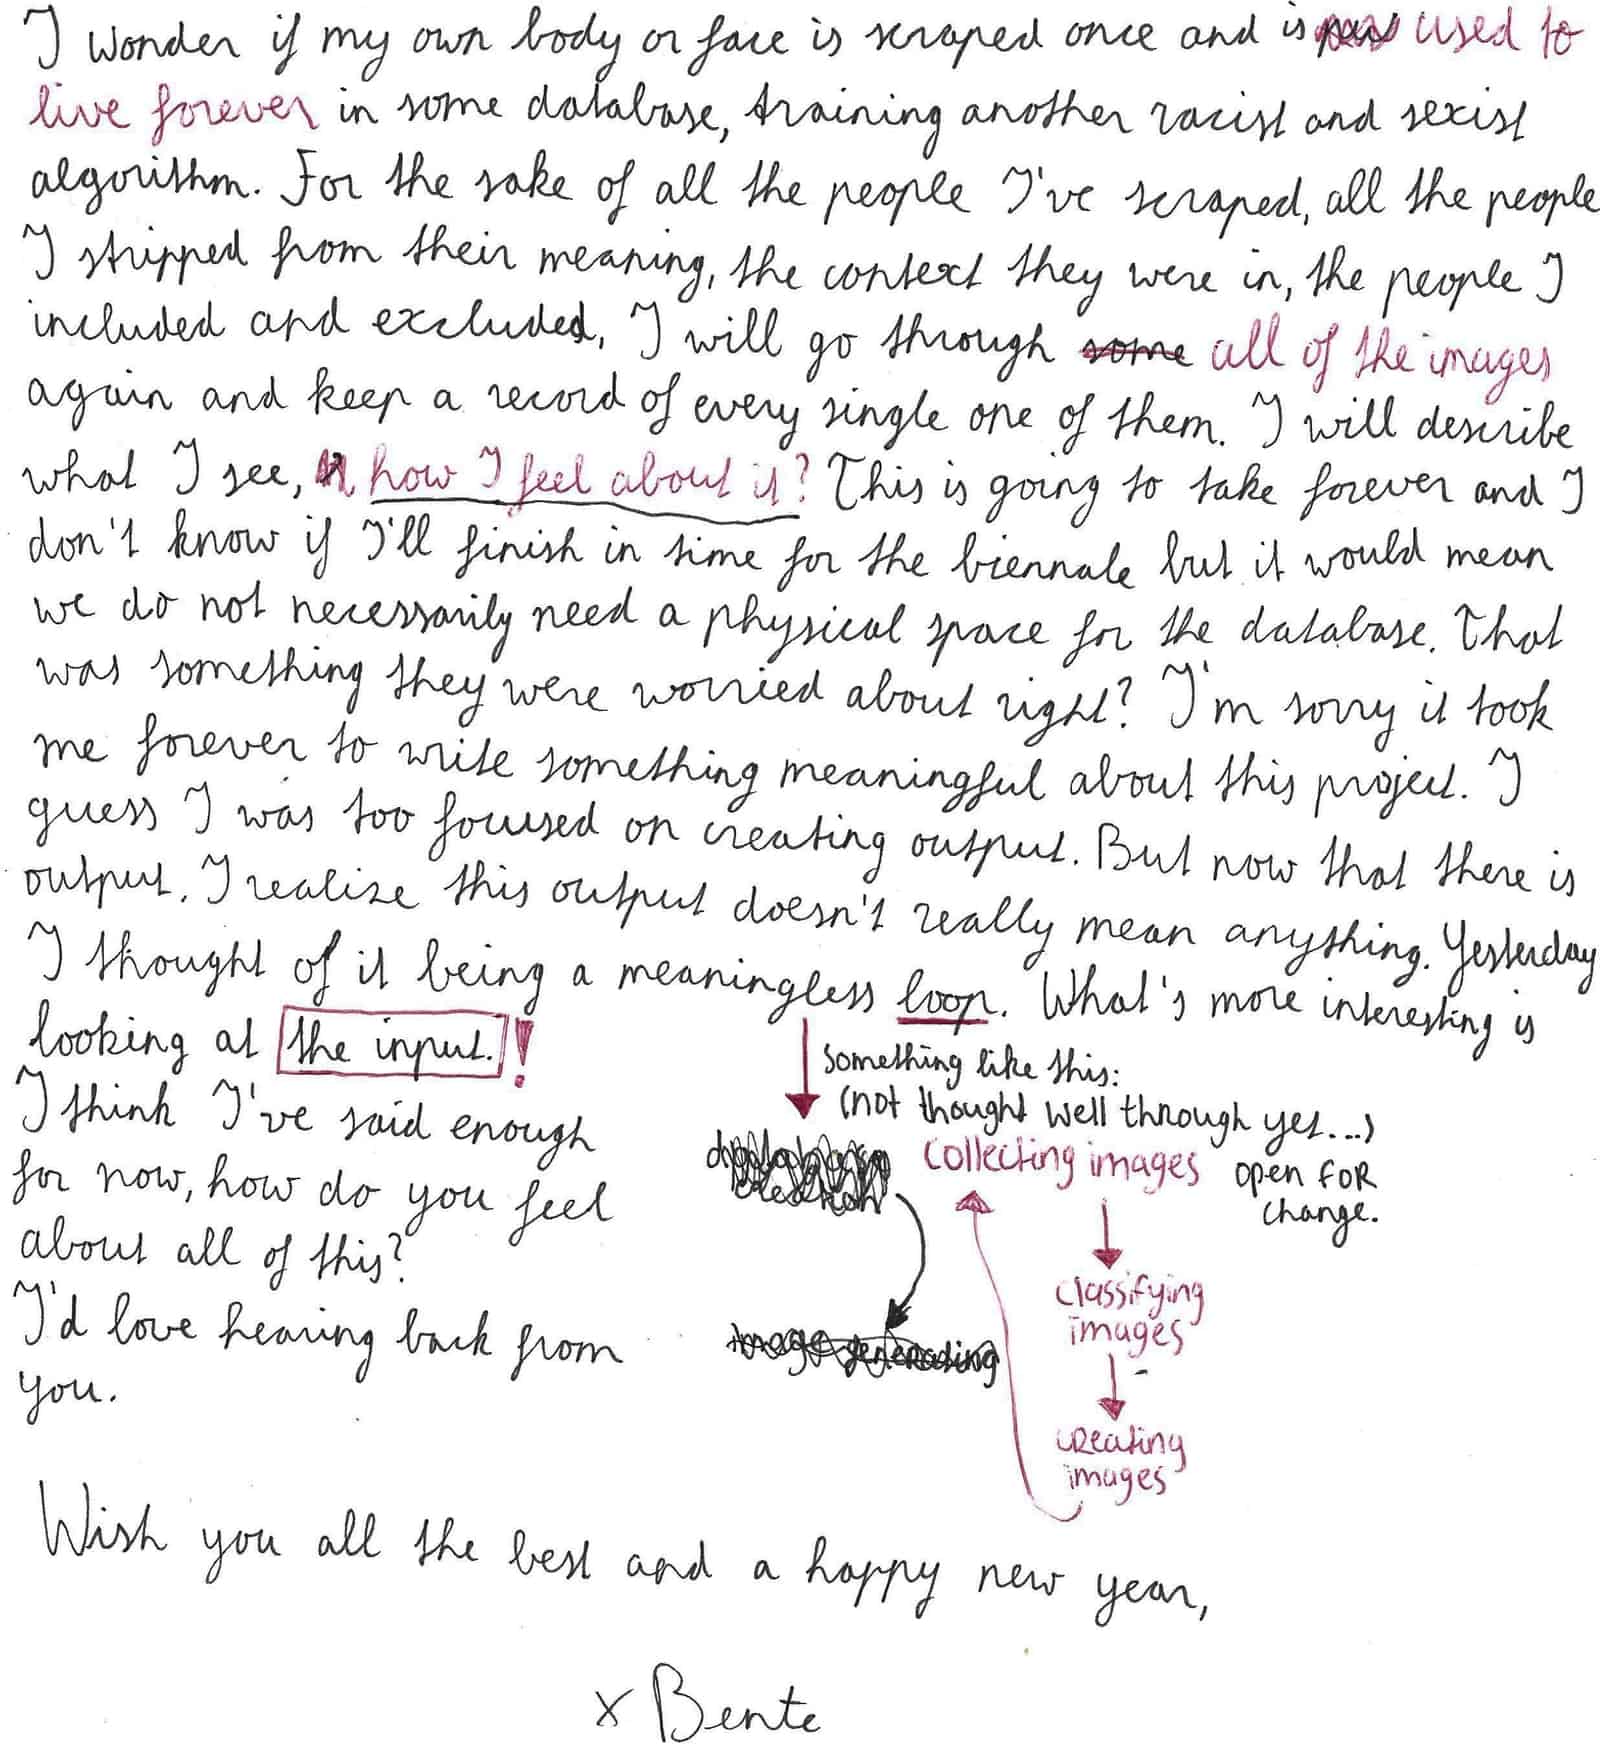 I wonder if my own body or face is scraped once and is used to
live forever in some database, training another racist and sexist
algorithm. For the sake of all the people I've scraped, all the people
I stripped from their meaning, the context they were in, the people I
included and excluded, I will go through some all of the images
again and keep a record of every single one of them. I will describe
what I see, how I feel about it? This is going to take forever and I
don't know if I'll finish in time for the biennale but it would mean
we do not necessarily need a physical space for the database. That
was something they were worried about right? I'm sorry it took
me forever to write something meaningful about this project. I
guess I was too focused on creating output. But now that there is
output, I realize this output doesn't really mean anything. Yesterday
I thought of it being a meaningless loop. What's more interesting is
looking at the input. !
I think I've said enough
for now, how do you feel
about all of this?
I'd love hearing back from
you.
something like this:
(not thought well through yet...)
collecting images
open FOR
change.
classifying
images
image generating
creating
images
Wish you all the best and a happy new year,
x Bente